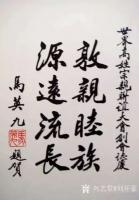 世界馬姓宗親聯誼大會創會誌慶
敦親睦族
源遠流長
馬英九
題賀